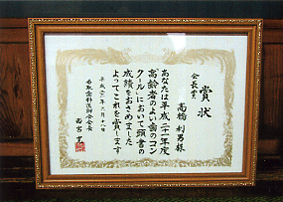 賞状
会長賞
高橋利男様
あなたは平成二十一年度
高齢者のよい歯のコン
クールにおいて頭書の
成績をおさめました
よってこれを賞します
平成二十一年六月十八日
歯科医師会会長